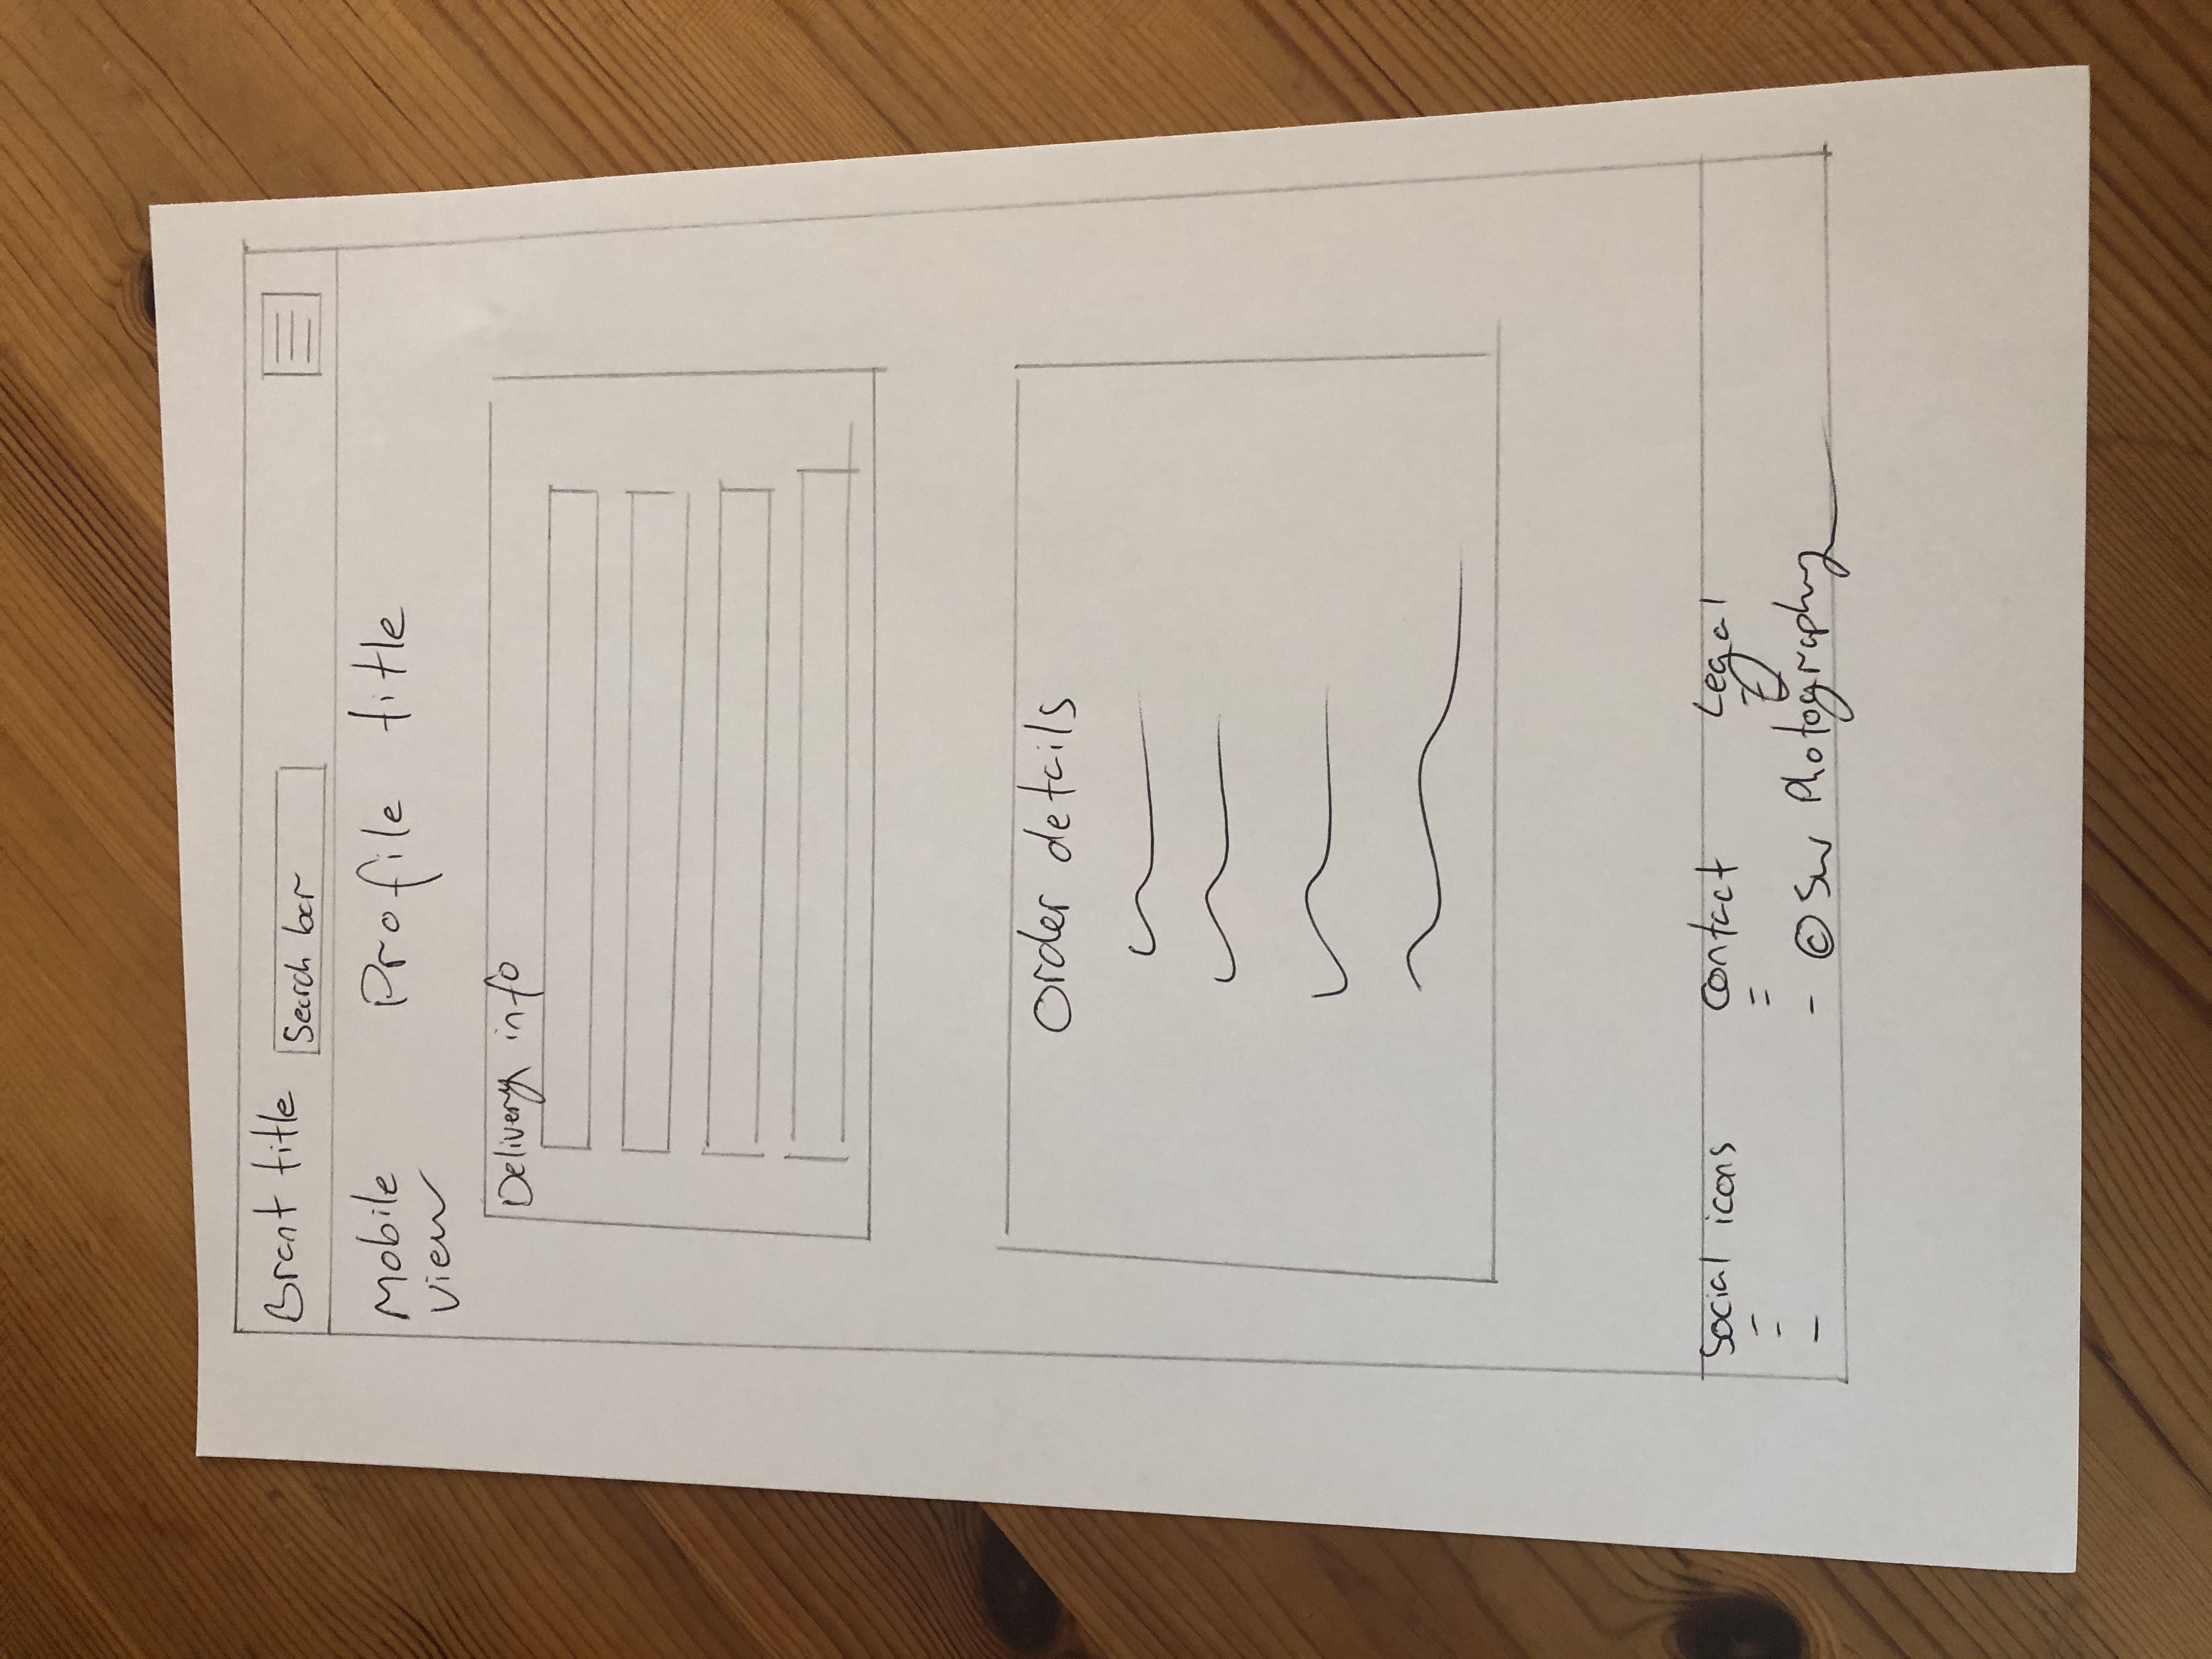 Brant title
Search bar
Mobile
view
Profile title
Delivery info
Order details
Social icons
Contact
Legal
© SW Photography